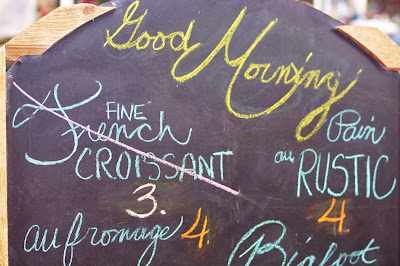 Good Morning
FINE
French
CROISSANT
3.
au fromage 4.
Pain
au RUSTIC
4
Bigfoot